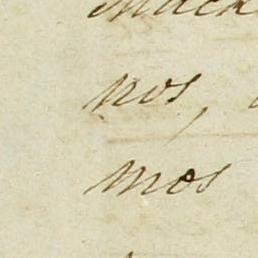 nos,
mos